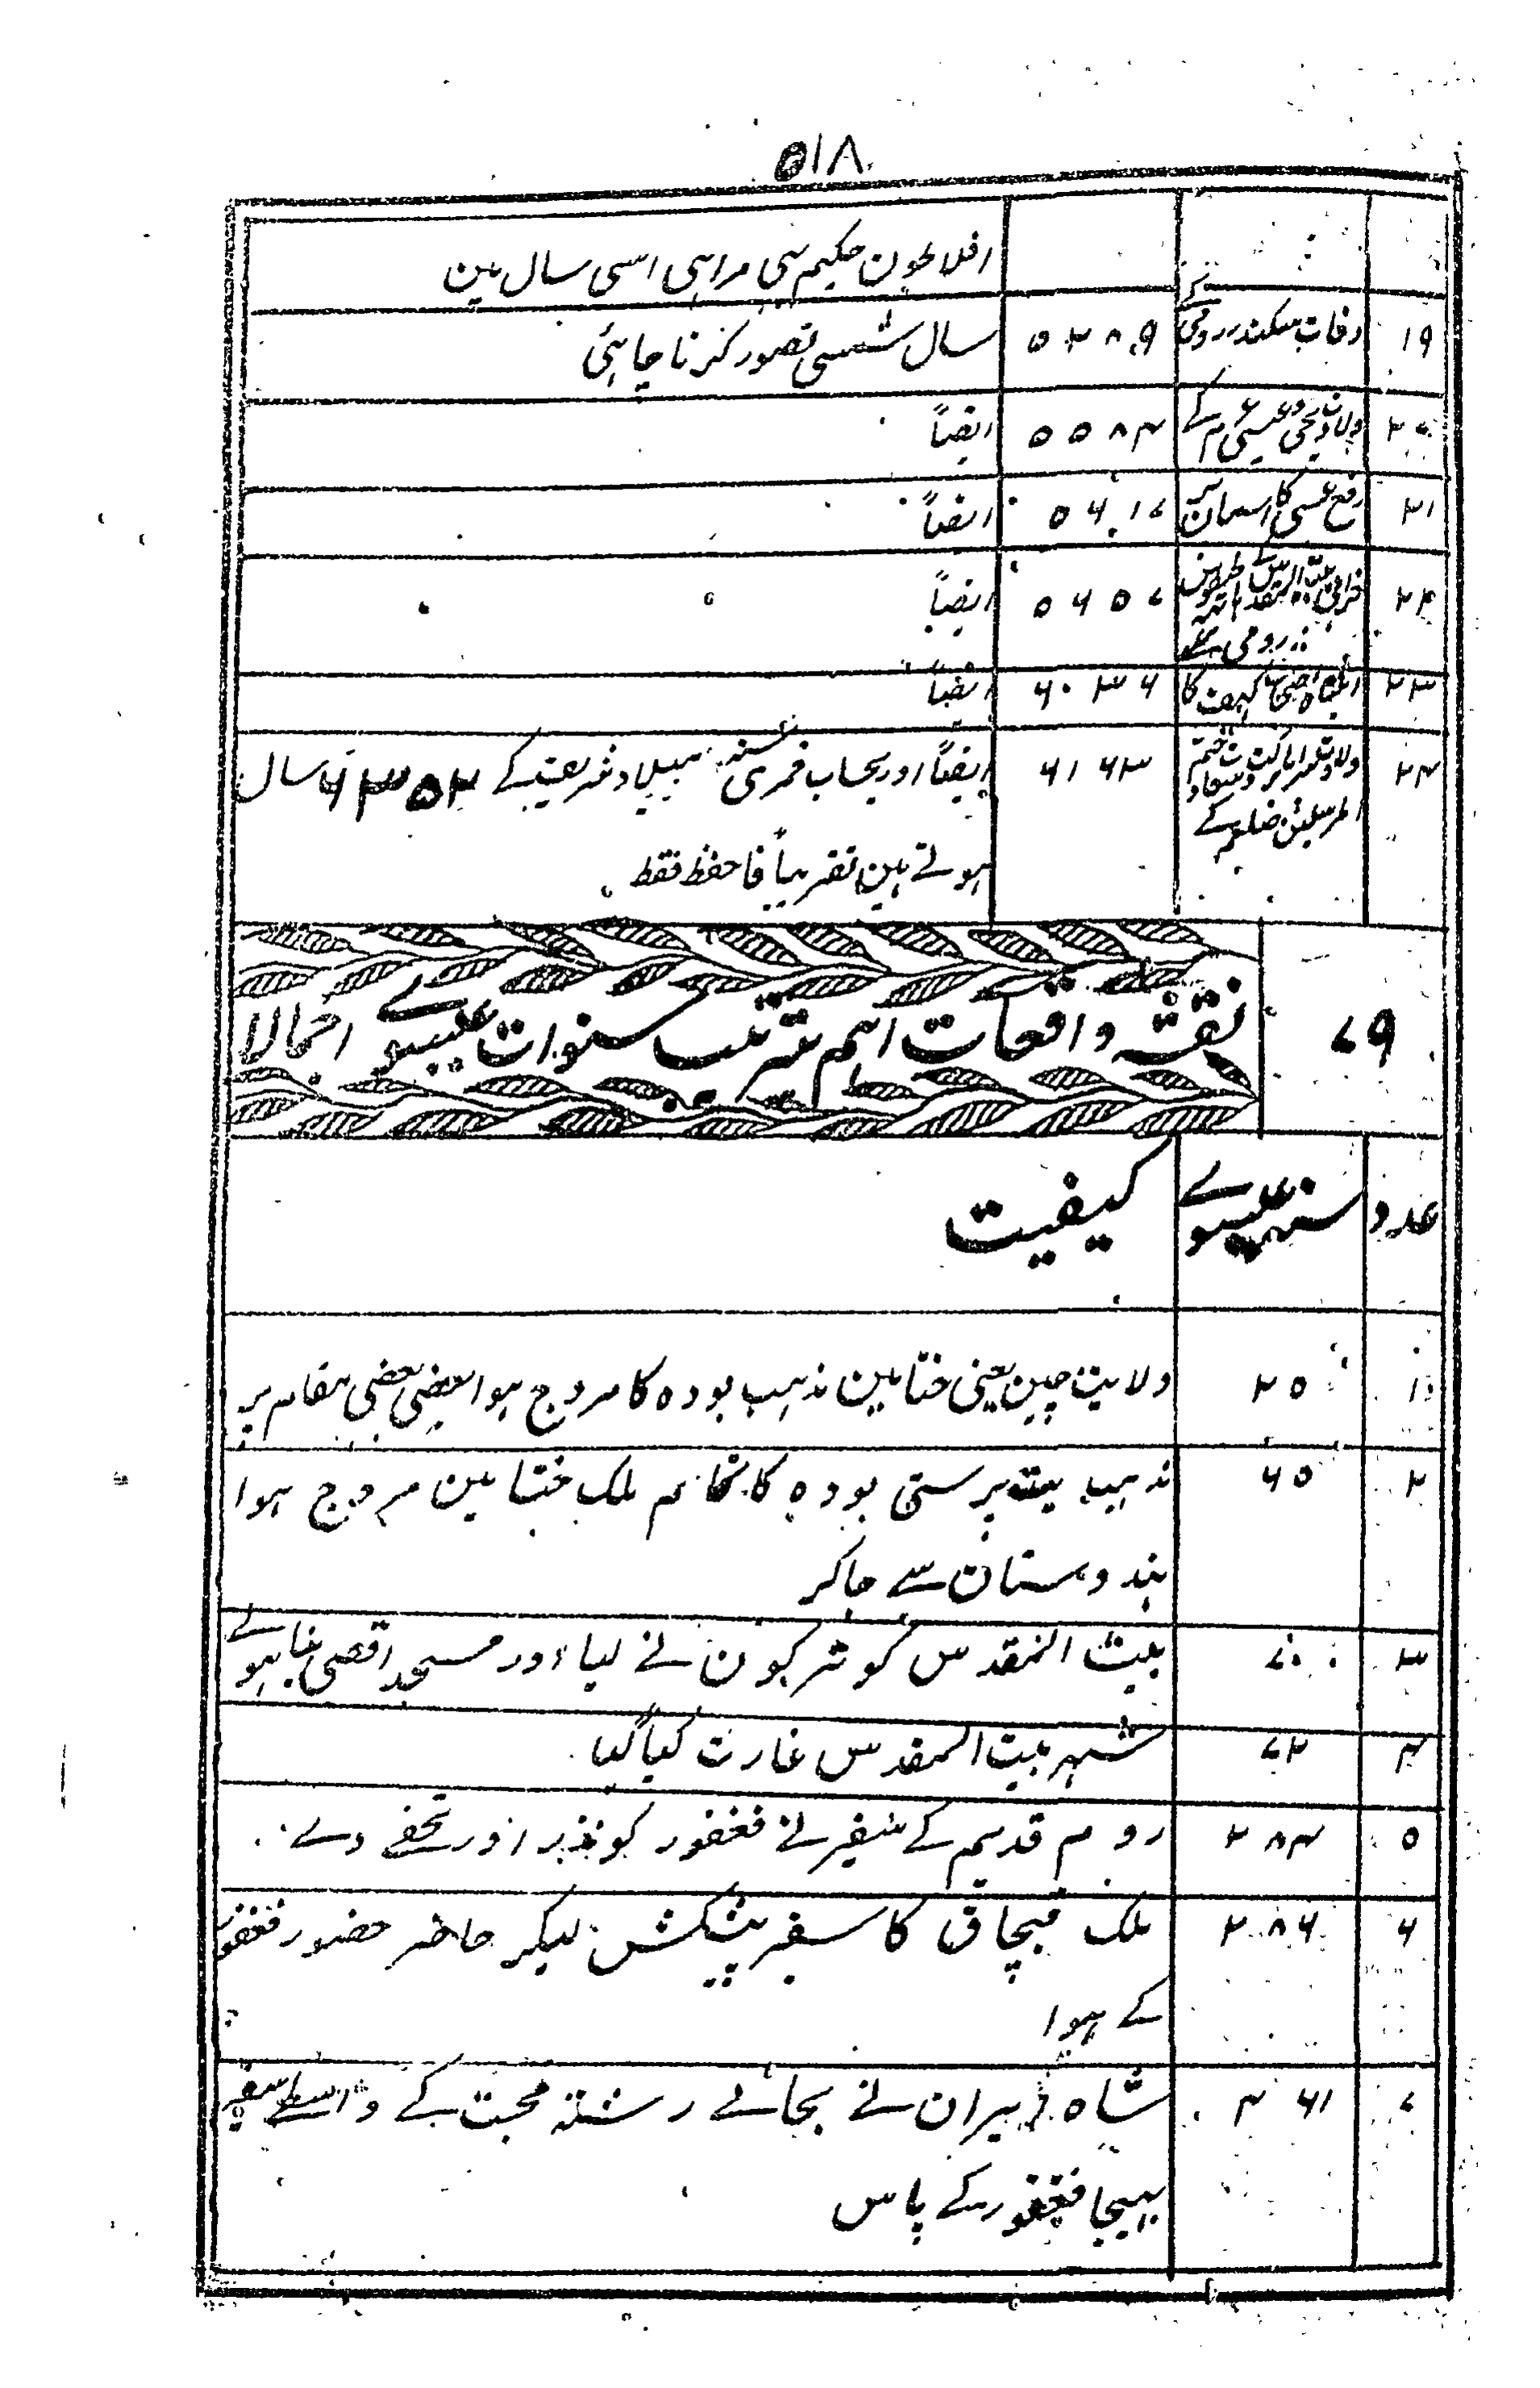 ۵۱۸
افلاطون حکیم بھی مرا ہی اسی سال مین
۱۹ وفات سکندر رومی کی ۵۲۸۹ سال شمسی تصور کرنا چاہئی
۲۰ ولادت یحیی و عیسی م کے ۵۵۸۴ ایضاً
۲۱ رفع عیسی کا آسمان پر ۵۶۱۷ ایضاً
۲۲ خرابی بیت المقدس کے طیطوس رومی سے ۵۶۵۷ ایضاً
۲۳ انتباہ اصحاب کہف کا ۶۰۳۶ ایضاً
۲۴ ولادت سراپا برکت و سعادت ختم المرسلین صلعم کے ۶۱۶۳ ایضاً اور بحساب قمری سنہ میلاد شریف کے ۶۳۵۲ سال
ہوتے ہین تقریباً فاحفظ فقط
۷۹ نقشہ واقعات اہم بترتیب سنوات عیسوے اجمالا
عدد سنہ عیسوے کیفیت
۱ ۲۵ ولایت چین یعنی ختا مین مذہب بودہ کا مروج ہوا بعضی بعضی مقام پر
۲ ۶۵ مذہب بت پرستی بودہ کا تمام ملک ختا مین مروج ہوا
ہندوستان سے جاکر
۳ ۷۰ بیت المقدس کو ترکون نے لیا اور مسجد اقصی بنا ہوے
۴ ۷۲ شہر بیت المقدس غارت کیا گیا
۵ ۲۸۴ روم قدیم کے سفیر نے فغفور کو نذر اور تحفے دے
۶ ۲۸۶ ملک قبچاق کا سفیر پیشکش لیکر حاضر حضور فغفور
کے ہوا
۷ ۴۶۱ شاہ ایران نے بجائے رشتہ محبت کے واسطے سفیر
بہیجا فغفور کے پاس